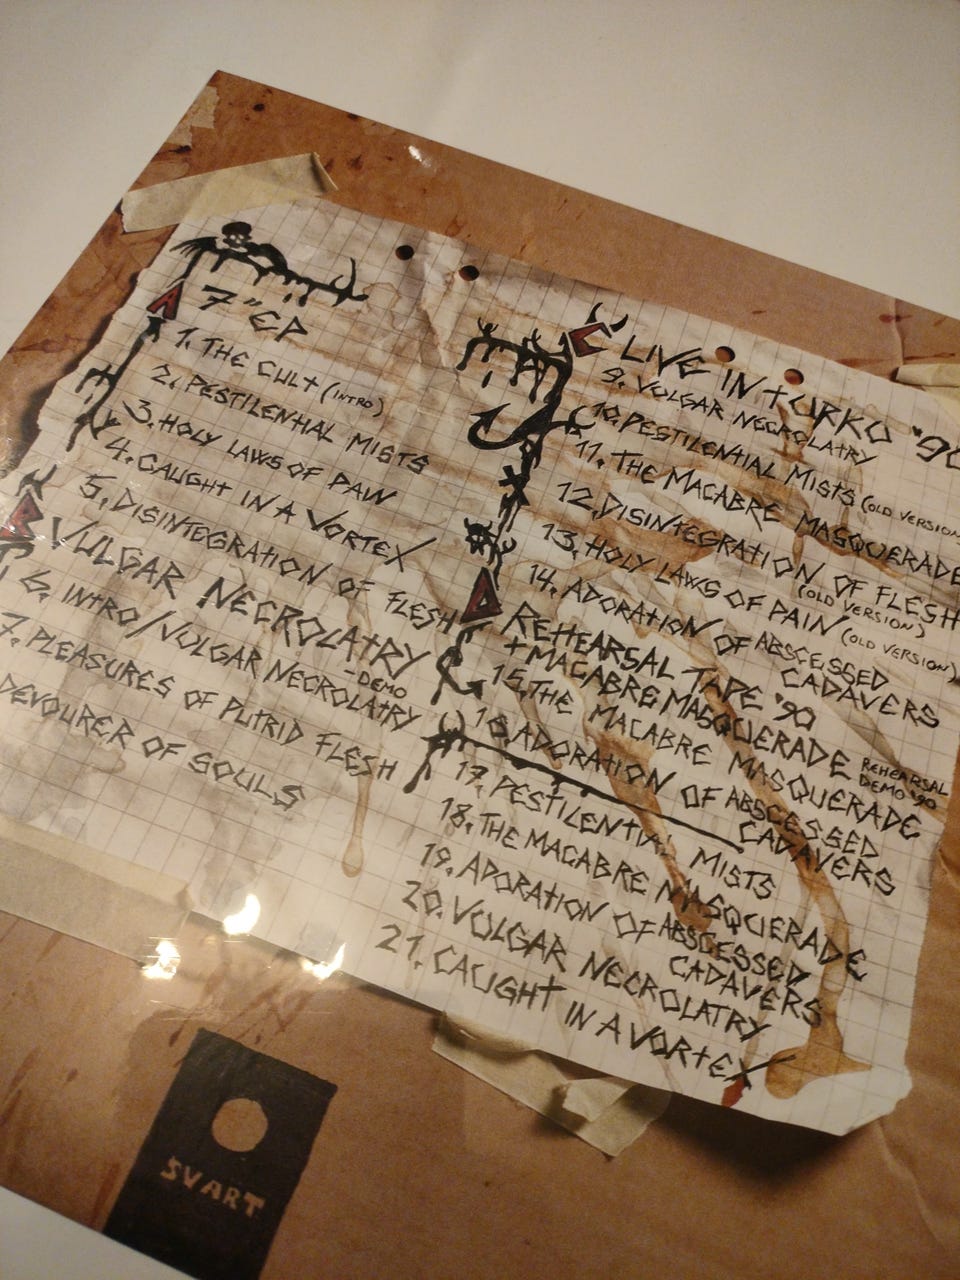 A
7" EP
1. THE CULT (INTRO)
2. PESTILENTIAL MISTS
3. HOLY LAWS OF PAIN
4. CAUGHT IN A VORTEX
5. DISINTEGRATION OF FLESH
B VULGAR NECROLATRY
-DEMO
6. INTRO/VULGAR NECROLATRY
7. PLEASURES OF PUTRID FLESH
DEVOURER OF SOULS
C LIVE IN TURKU '90
9. VULGAR NECROLATRY
10. PESTILENTIAL MISTS (OLD VERSION)
11. THE MACABRE MASQUERADE
12. DISINTEGRATION OF FLESH
(OLD VERSION)
13. HOLY LAWS OF PAIN (OLD VERSION)
14. ADORATION OF ABSCESSED
CADAVERS
D REHEARSAL TAPE '90
+ MACABRE MASQUERADE REHEARSAL
DEMO '90
15. THE MACABRE MASQUERADE
16. ADORATION OF ABSCESSED
CADAVERS
17. PESTILENTIAL MISTS
18. THE MACABRE MASQUERADE
19. ADORATION OF ABSCESSED
CADAVERS
20. VULGAR NECROLATRY
21. CAUGHT IN A VORTEX
SVART